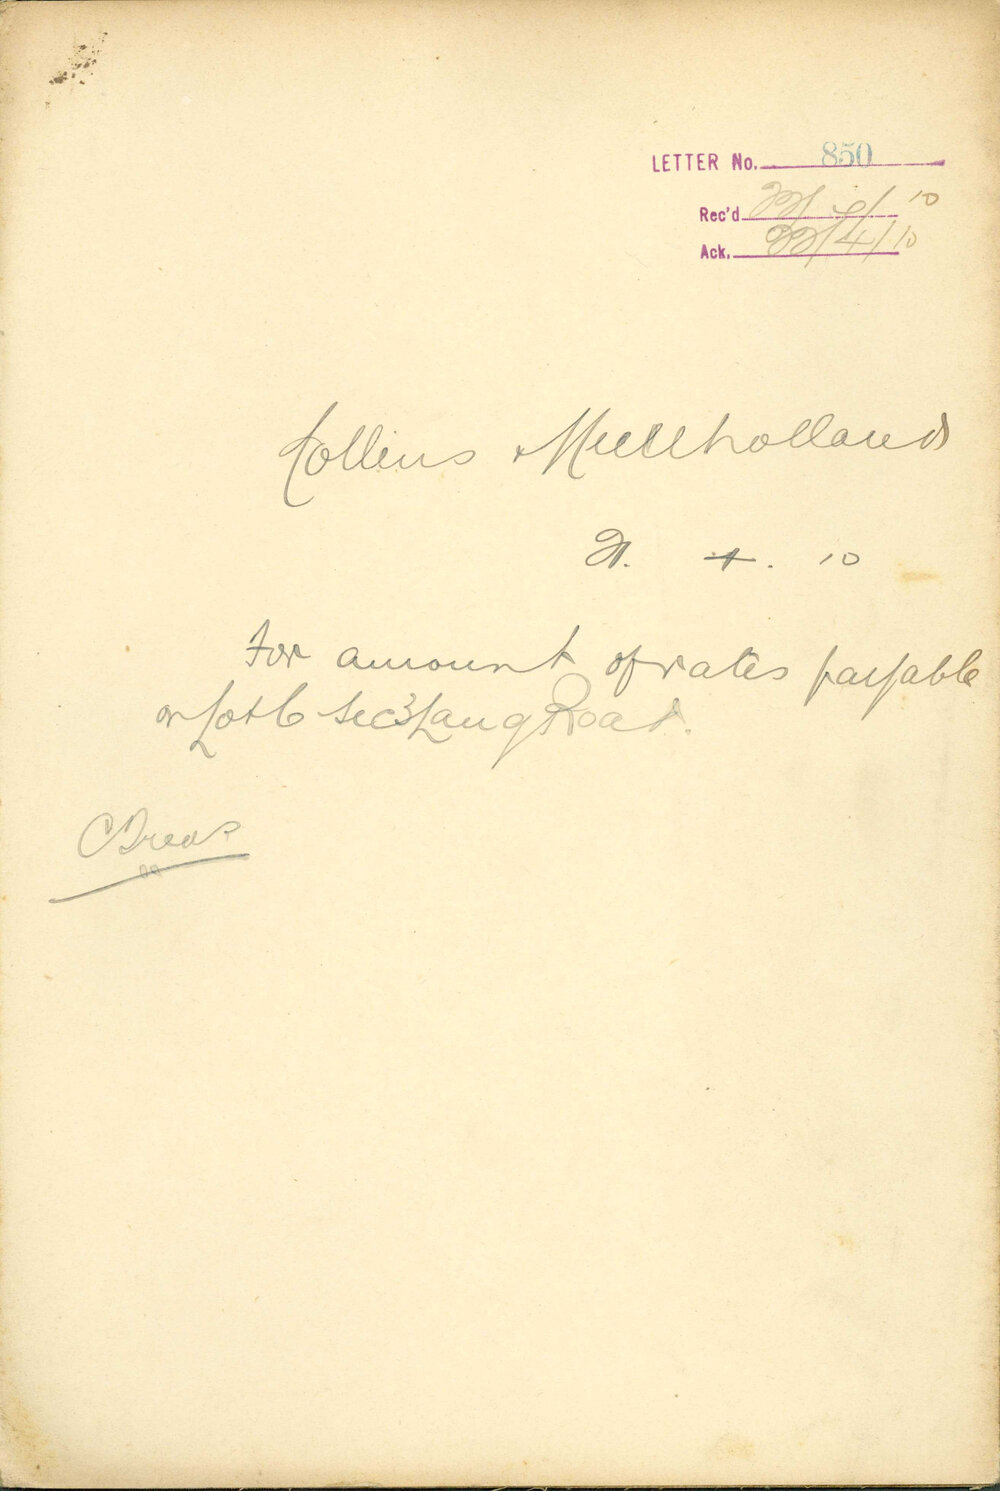 LETTER No. 850
Rec'd 22/4/10
Ack. 22/4/10
Collins & Mullholland
21. 4. 10
For amount of rates payable
on Lot 6 Sec 3 Lang Road.